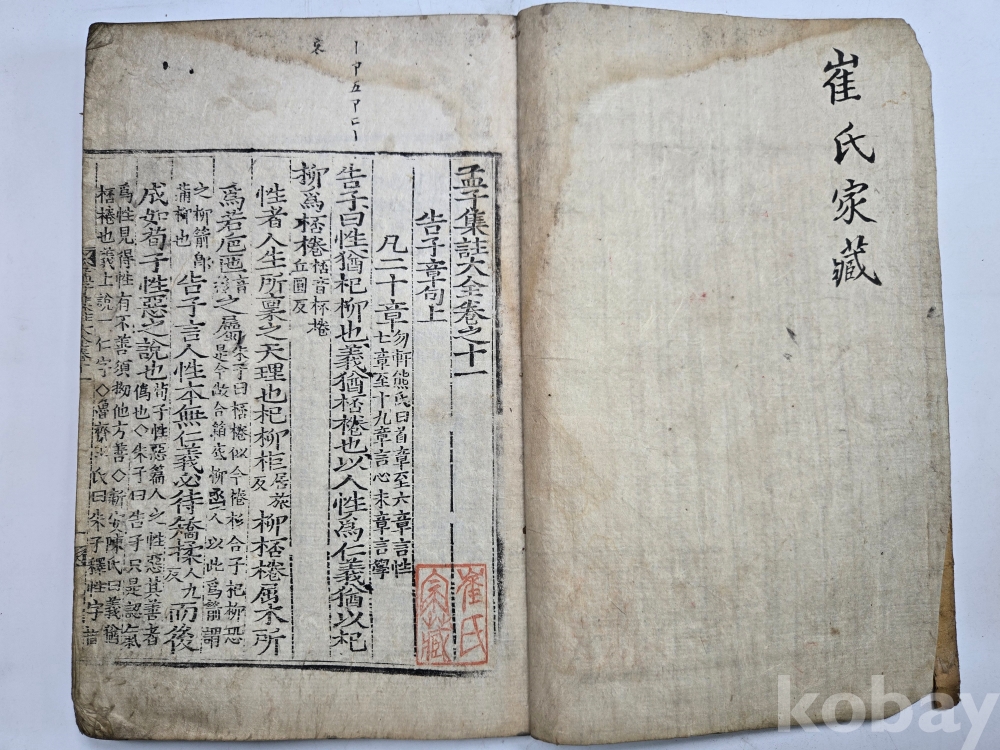 崔氏家藏
孟子集註大全卷之十一
告子章句上
凡二十章 勿軒熊氏曰首章至六章言性
七章至十九章言心末章言學
告子曰性猶杞柳也義猶桮棬也以人性爲仁義猶以杞
柳爲桮棬 桮音杯棬
丘圓反
性者人生所稟之天理也杞柳柜 居旅
反 柳桮棬屈木所
爲若巵匜 之屬 朱子曰桮棬似今棬杉合子杞柳恐
是今做合箱底柳 人以此爲箭謂
之柳箭卽
蒲柳也 告子言人性本無仁義必待矯揉 人九
反 而後
成如荀子性惡之說也 荀子性惡篇人之性惡其善者
僞也◇朱子曰告子只是認氣
爲性見得性有不善須拗他方善◇新安陳氏曰義猶
桮棬也義上說一仁字◇魯齊 氏曰朱子釋性字
崔氏
家藏
kobay